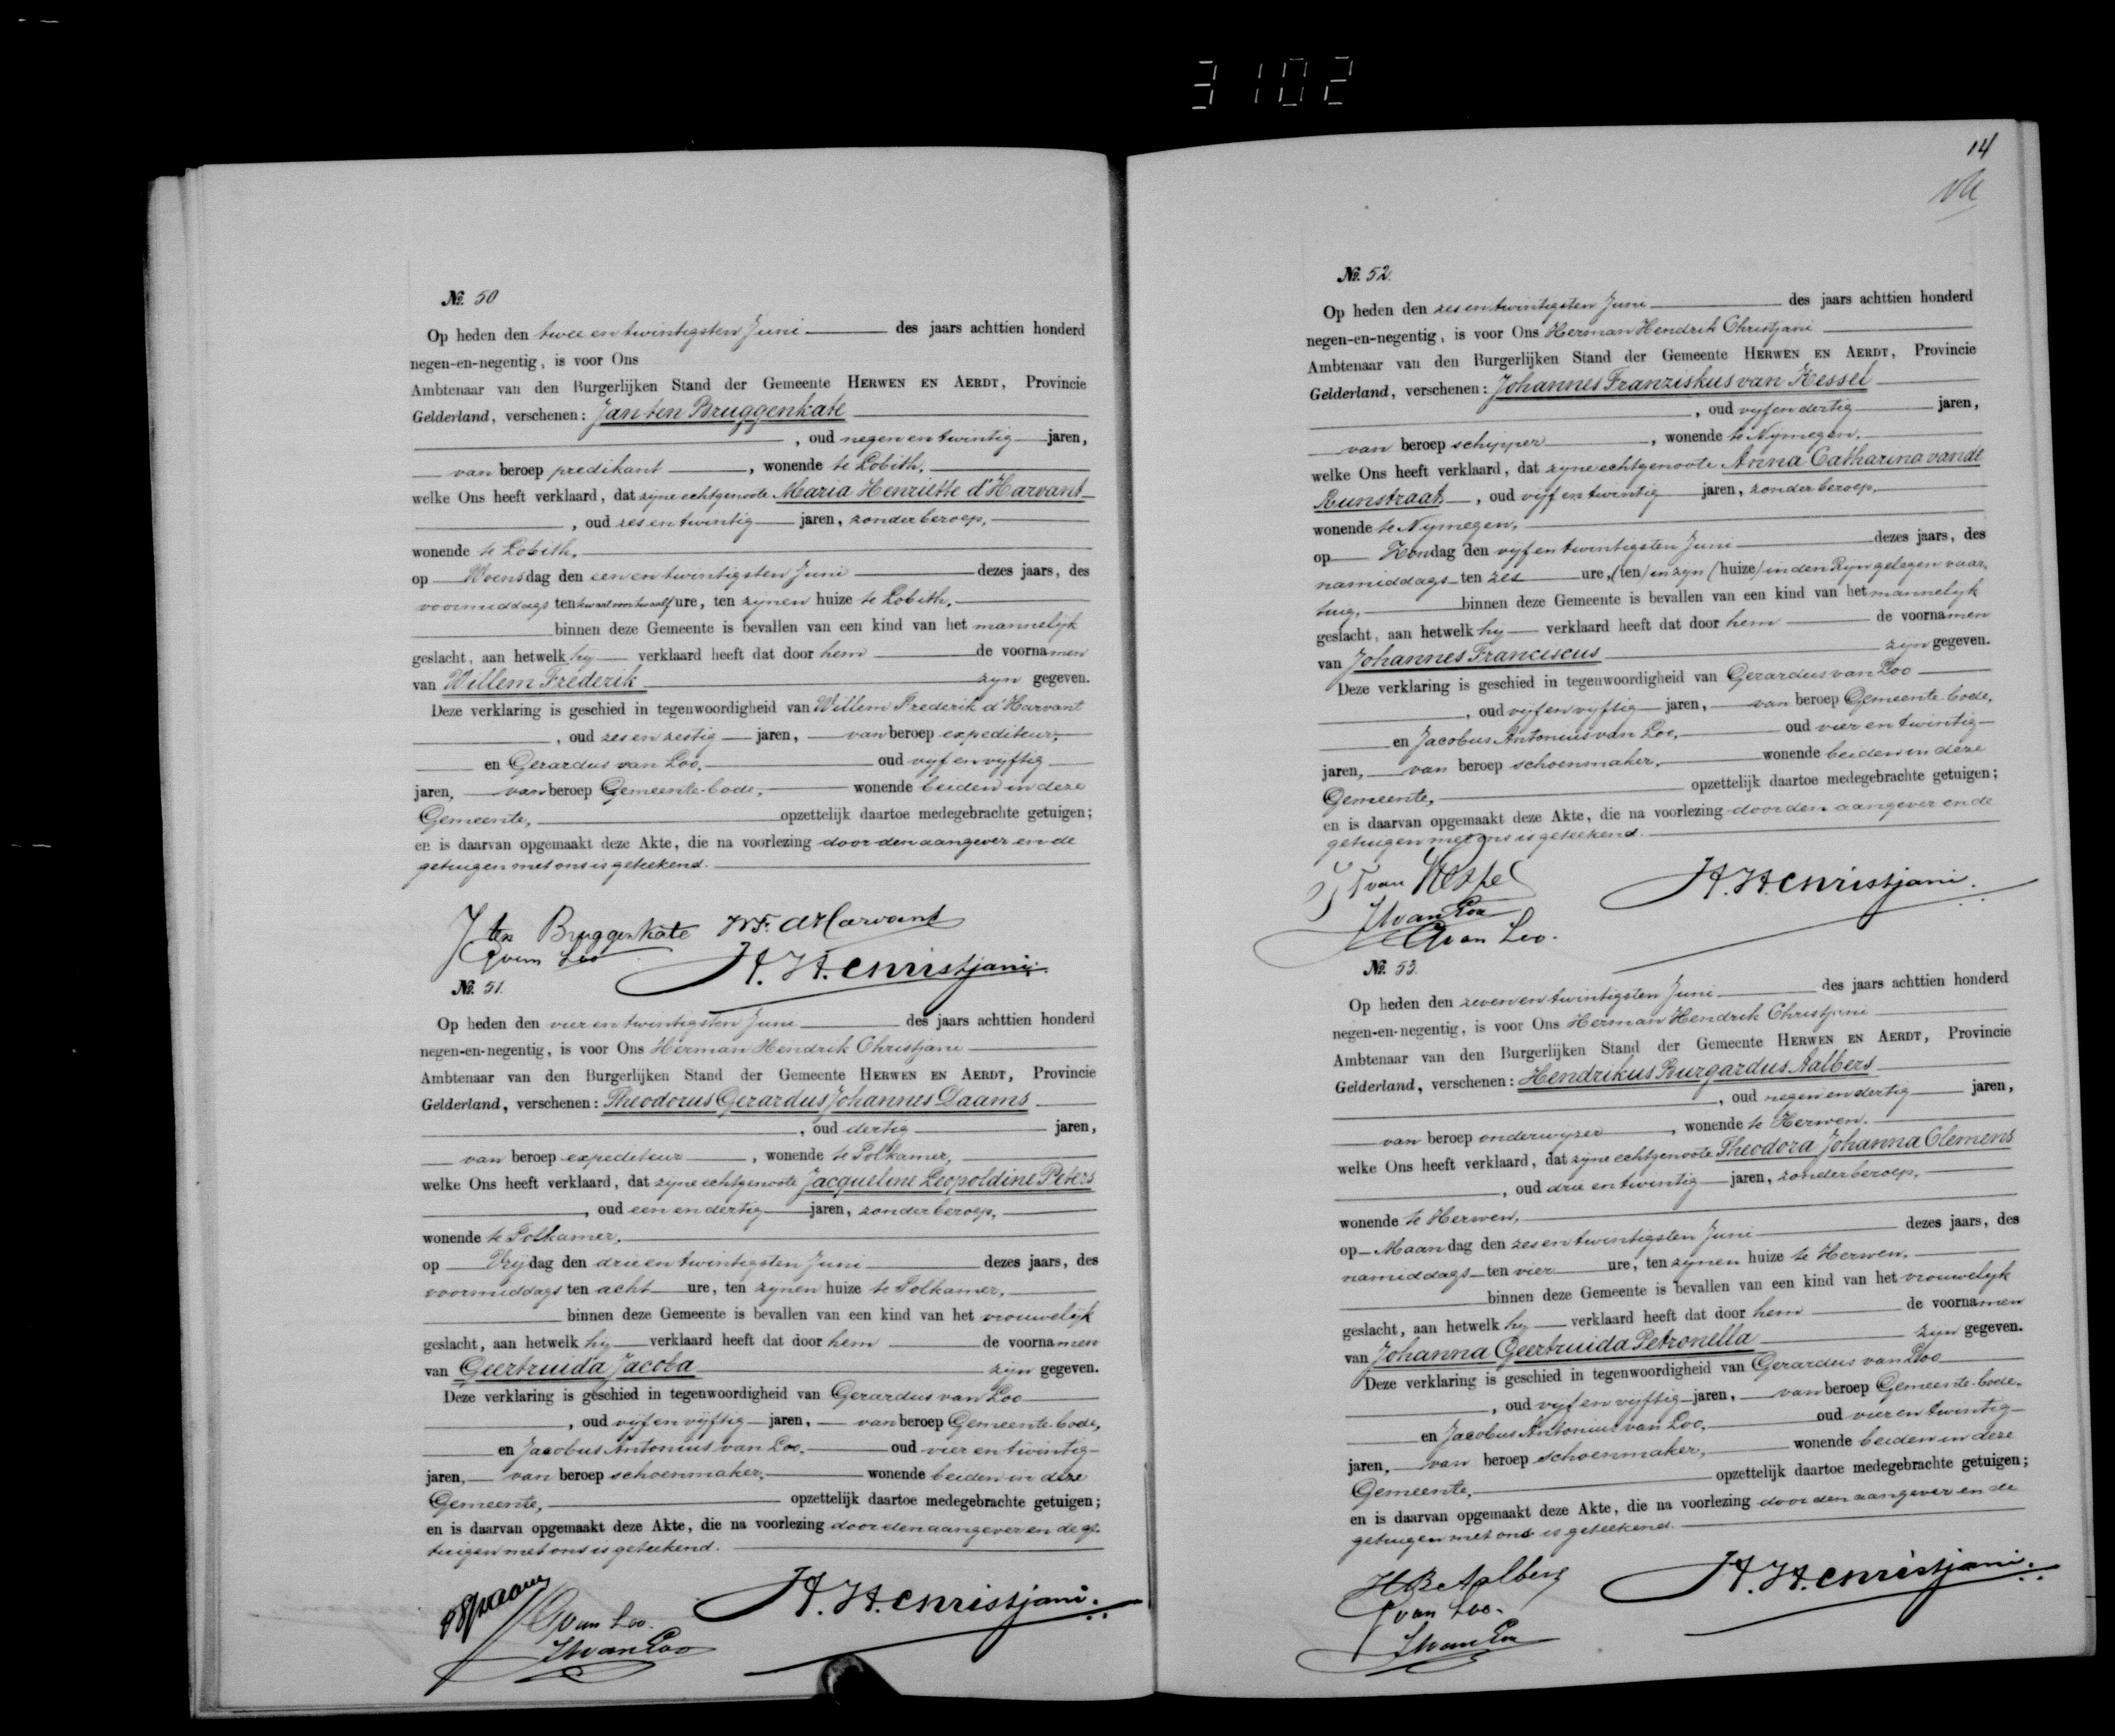 3102
№. 50
Op heden den twee en twintigsten Juni des jaars achttien honderd
negen-en-negentig, is voor Ons
Ambtenaar van den Burgerlijken Stand der Gemeente HERWEN EN AERDT, Provincie
Gelderland, verschenen: Jan ten Bruggenkate
, oud negen en twintig jaren,
van beroep predikant, wonende te Lobith,
welke Ons heeft verklaard, dat zijne echtgenoote Maria Henriette d'Harvant
, oud zes en twintig jaren, zonder beroep,
wonende te Lobith,
op Woensdag den een en twintigsten Juni dezes jaars, des
voormiddags ten kwart voor twaalf ure, ten zijnen huize te Lobith,
binnen deze Gemeente is bevallen van een kind van het mannelijk
geslacht, aan hetwelk hij verklaard heeft dat door hem de voornamen
van Willem Frederik zijn gegeven.
Deze verklaring is geschied in tegenwoordigheid van Willem Frederik d'Harvant
, oud zes en zestig jaren, van beroep expediteur,
en Gerardus van Loo, oud vijf en vijftig
jaren, van beroep Gemeente-bode, wonende beiden in deze
Gemeente, opzettelijk daartoe medegebrachte getuigen;
en is daarvan opgemaakt deze Akte, die na voorlezing door den aangever en de
getuigen met ons is geteekend.
J ten Bruggenkate W.F. d'Harvant
G van Loo
H. H. Christjani.
№. 51.
Op heden den vier en twintigsten Juni des jaars achttien honderd
negen-en-negentig, is voor Ons Herman Hendrik Christjani
Ambtenaar van den Burgerlijken Stand der Gemeente HERWEN EN AERDT, Provincie
Gelderland, verschenen: Theodorus Gerardus Johannes Daams
, oud dertig jaren,
van beroep expediteur, wonende te Tolkamer,
welke Ons heeft verklaard, dat zijne echtgenoote Jacqueline Leopoldine Peters
, oud een en dertig jaren, zonder beroep,
wonende te Tolkamer,
op Vrijdag den drie en twintigsten Juni dezes jaars, des
voormiddags ten acht ure, ten zijnen huize te Tolkamer,
binnen deze Gemeente is bevallen van een kind van het vrouwelijk
geslacht, aan hetwelk hij verklaard heeft dat door hem de voornamen
van Geertruida Jacoba zijn gegeven.
Deze verklaring is geschied in tegenwoordigheid van Gerardus van Loo
, oud vijf en vijftig jaren, van beroep Gemeente-bode,
en Jacobus Antonius van Loo, oud vier en twintig
jaren, van beroep schoenmaker, wonende beiden in deze
Gemeente, opzettelijk daartoe medegebrachte getuigen;
en is daarvan opgemaakt deze Akte, die na voorlezing door den aangever en de ge-
tuigen met ons is geteekend.
G van Loo.
H. H. Christjani.
JA van Loo
14
№. 52.
Op heden den zes en twintigsten Juni des jaars achttien honderd
negen-en-negentig, is voor Ons Herman Hendrik Christjani
Ambtenaar van den Burgerlijken Stand der Gemeente HERWEN EN AERDT, Provincie
Gelderland, verschenen: Johannes Franziskus van Kessel
, oud vijf en dertig jaren,
van beroep schipper, wonende te Nijmegen,
welke Ons heeft verklaard, dat zijne echtgenoote Anna Catharina van de
Runstraat, oud vijf en twintig jaren, zonder beroep,
wonende te Nijmegen,
op Zondag den vijf en twintigsten Juni dezes jaars, des
namiddags ten zes ure, (ten) in zijn (huize) in den Rijn gelegen vaar-
tuig, binnen deze Gemeente is bevallen van een kind van het mannelijk
geslacht, aan hetwelk hij verklaard heeft dat door hem de voornamen
van Johannes Franciscus zijn gegeven.
Deze verklaring is geschied in tegenwoordigheid van Gerardus van Loo
, oud vijf en vijftig jaren, van beroep Gemeente-bode,
en Jacobus Antonius van Loo, oud vier en twintig
jaren, van beroep schoenmaker, wonende beiden in deze
Gemeente, opzettelijk daartoe medegebrachte getuigen;
en is daarvan opgemaakt deze Akte, die na voorlezing door den aangever en de
getuigen met ons is geteekend.
J F van Kessel
H. H. Christjani.
JA van Loo
G van Loo.
№. 53.
Op heden den zeven en twintigsten Juni des jaars achttien honderd
negen-en-negentig, is voor Ons Herman Hendrik Christjani
Ambtenaar van den Burgerlijken Stand der Gemeente HERWEN EN AERDT, Provincie
Gelderland, verschenen: Hendrikus Burgardus Aalbers
, oud negen en dertig jaren,
van beroep onderwijzer, wonende te Herwen,
welke Ons heeft verklaard, dat zijne echtgenoote Theodora Johanna Clemens
, oud drie en twintig jaren, zonder beroep,
wonende te Herwen,
op Maandag den zes en twintigsten Juni dezes jaars, des
namiddags ten vier ure, ten zijnen huize te Herwen,
binnen deze Gemeente is bevallen van een kind van het vrouwelijk
geslacht, aan hetwelk hij verklaard heeft dat door hem de voornamen
van Johanna Geertruida Petronella zijn gegeven.
Deze verklaring is geschied in tegenwoordigheid van Gerardus van Loo
, oud vijf en vijftig jaren, van beroep Gemeente-bode,
en Jacobus Antonius van Loo, oud vier en twintig
jaren, van beroep schoenmaker, wonende beiden in deze
Gemeente, opzettelijk daartoe medegebrachte getuigen;
en is daarvan opgemaakt deze Akte, die na voorlezing door den aangever en de
getuigen met ons is geteekend.
H B Aalbers
H. H. Christjani.
G van Loo.
JA van Loo